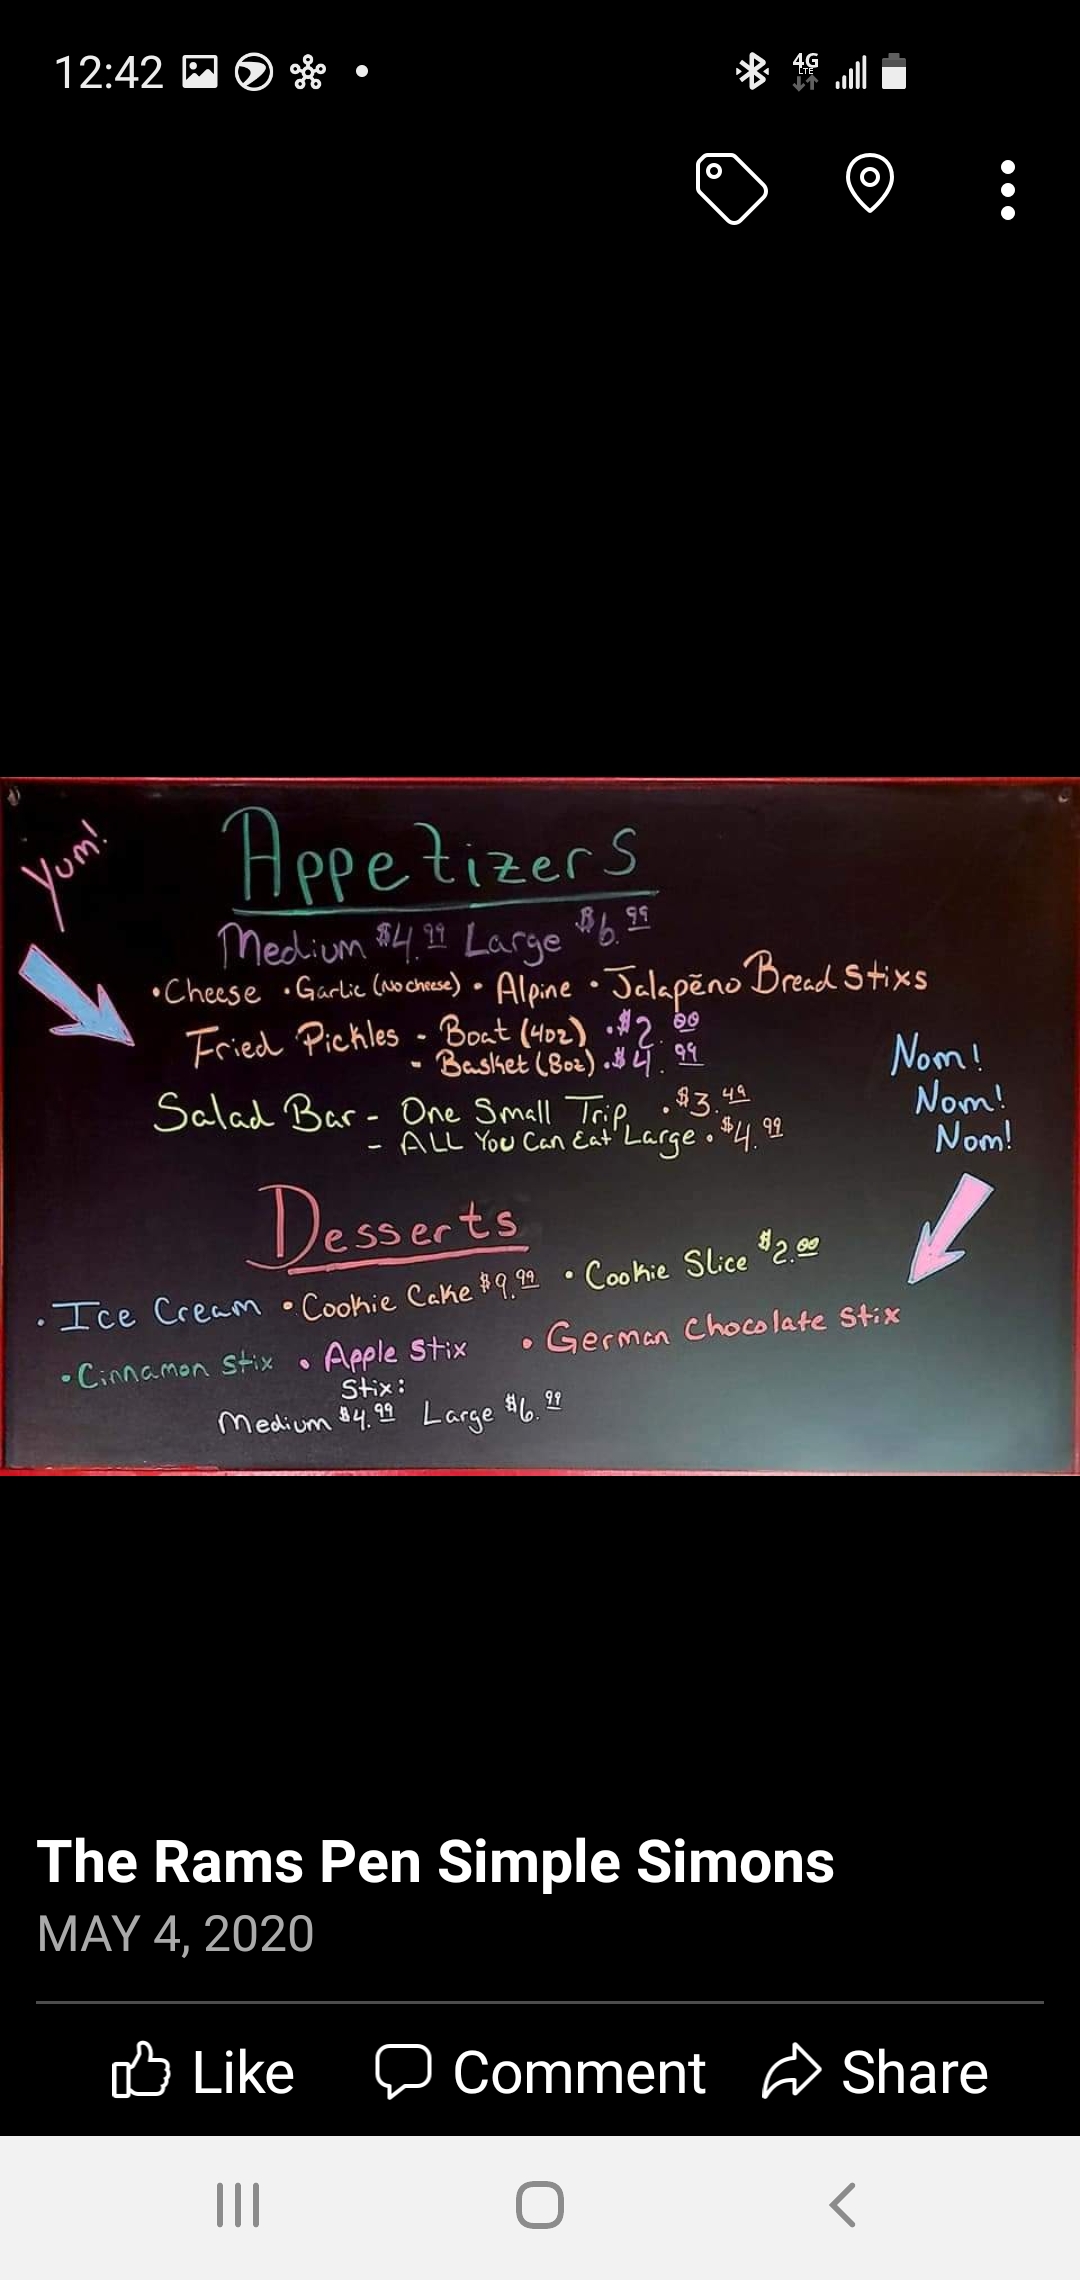 12:42
4G
LTE
Yum!
Appetizers
Medium $4.99 Large $6.99
•Cheese •Garlic (No cheese) • Alpine • Jalapēno Bread Stixs
Fried Pickles - Boat (4oz) •$2.00
- Basket (8oz) •$4.99
Salad Bar - One Small Trip •$3.49
- ALL You Can Eat Large •$4.99
Nom!
Nom!
Nom!
Desserts
• Ice Cream • Cookie Cake $9.99 • Cookie Slice $2.00
• Cinnamon Stix • Apple Stix • German Chocolate Stix
Stix:
Medium $4.99 Large $6.99
The Rams Pen Simple Simons
MAY 4, 2020
Like Comment Share